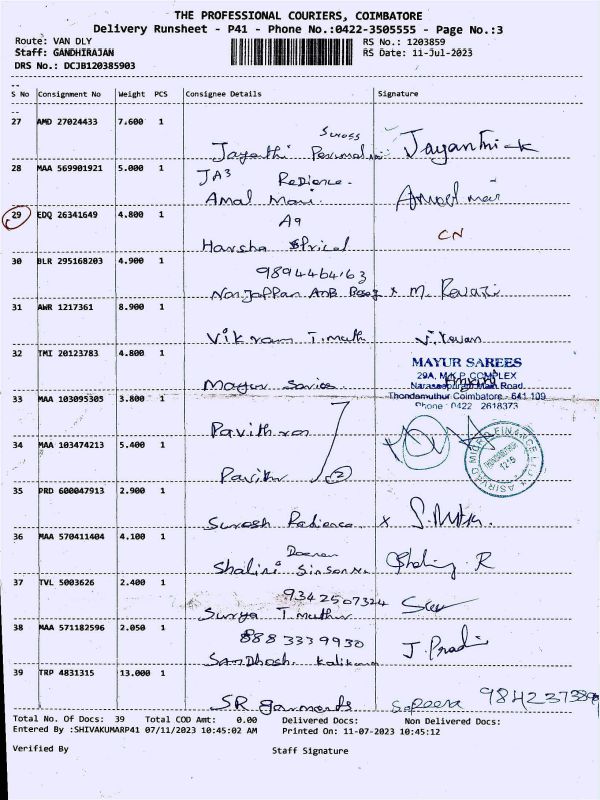 THE PROFESSIONAL COURIERS, COIMBATORE
Delivery Runsheet - P41 - Phone No.:0422-3505555 - Page No.:3
Route: VAN DLY RS No.: 1203859
Staff: GANDHIRAJAN RS Date: 11-Jul-2023
DRS No.: DCJB120385903
S No Consignment No Weight PCS Consignee Details Signature
27 AMD 27024433 7.600 1
Jayanthi
28 MAA 569901921 5.000 1
JA3 Redience.
Amal Mani
29 EDQ 26341649 4.800 1
A9
CN
Harsha
30 BLR 295168203 4.900 1
9894464163
x M. Revati
31 AWR 1217361 8.900 1
Vikram T. muth
32 TMI 20123783 4.800 1
MAYUR SAREES
29A, M.K.P. COMPLEX
Naraseepuram Main Road,
Mayur
33 MAA 103095305 3.800 1
Thondamuthur Coimbatore - 641 109
Phone 0422 2618373
Pavithran
34 MAA 103474213 5.400 1
Pavithr 2
35 PRD 600047913 2.900 1
Suresh Redience x
36 MAA 570411404 4.100 1
Shalini Shaliny R
37 TVL 5003626 2.400 1
9342507324
Surya T. muthur
38 MAA 571182596 2.050 1
888 333 9930
Sandhosh J. Pradi
39 TRP 4831315 13.000 1
SR garments
Total No. Of Docs: 39 Total COD Amt: 0.00 Delivered Docs: Non Delivered Docs:
Entered By :SHIVAKUMARP41 07/11/2023 10:45:02 AM Printed On: 11-07-2023 10:45:12
Verified By Staff Signature